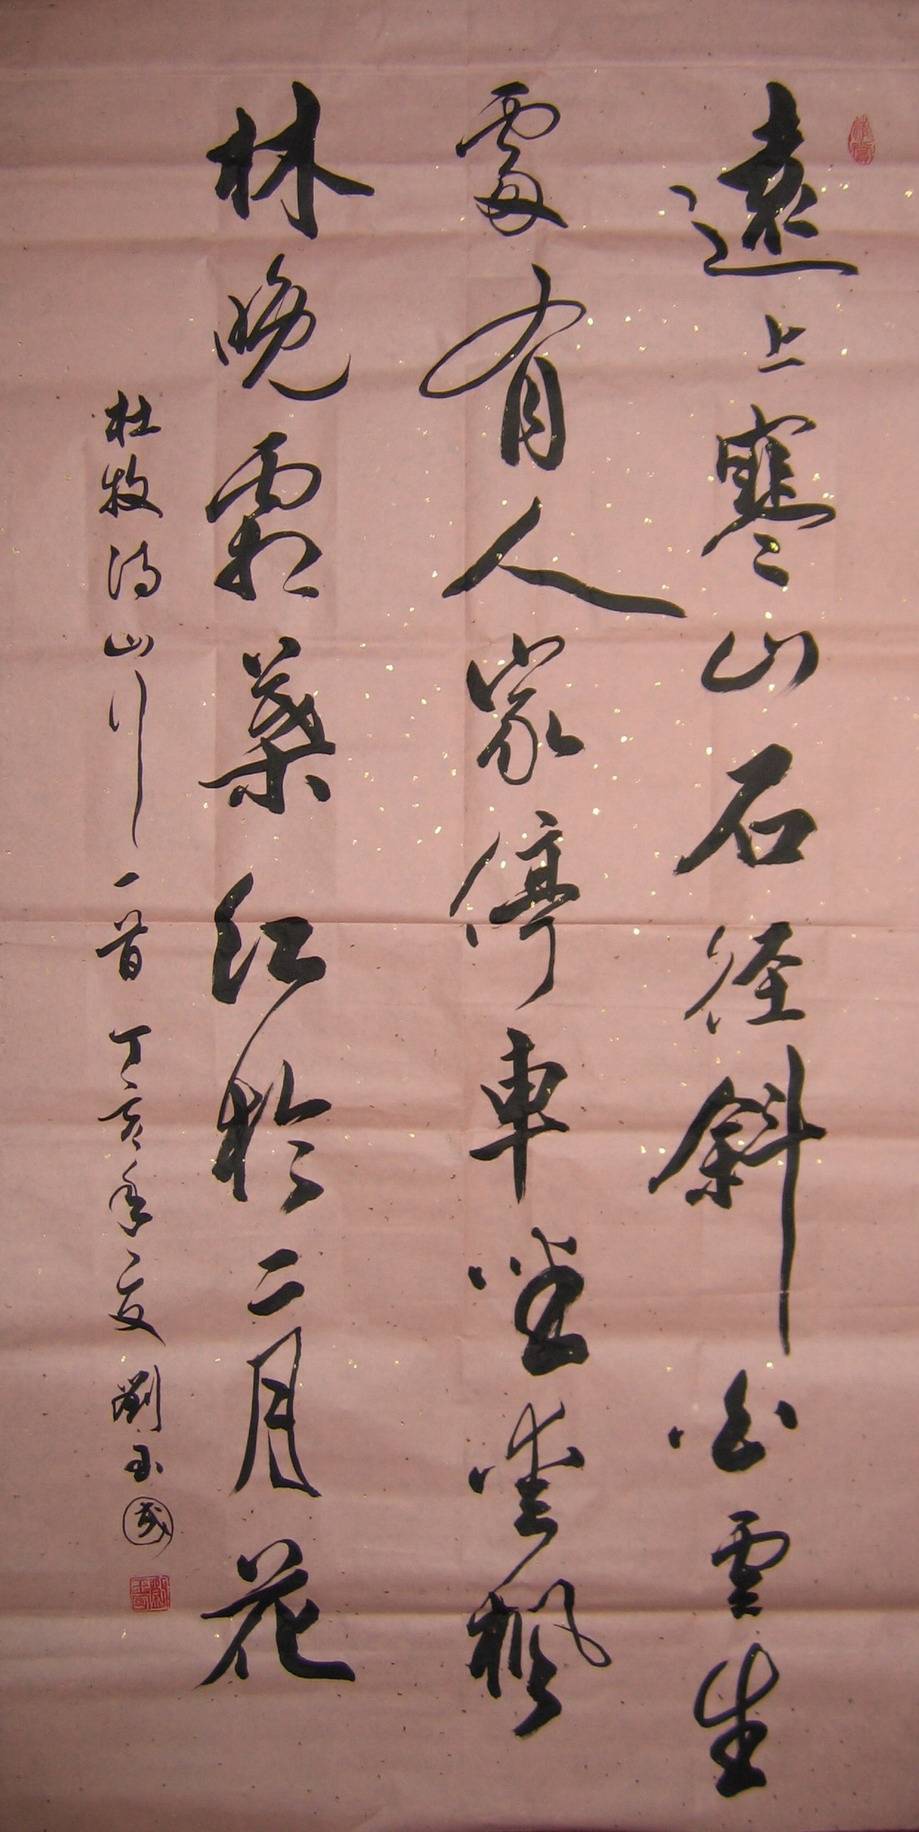 遠上寒山石径斜白雲生
處有人家停車坐爱楓
林晚霜葉红於二月花
杜牧诗山行一首 丁亥年夏 劉玉国